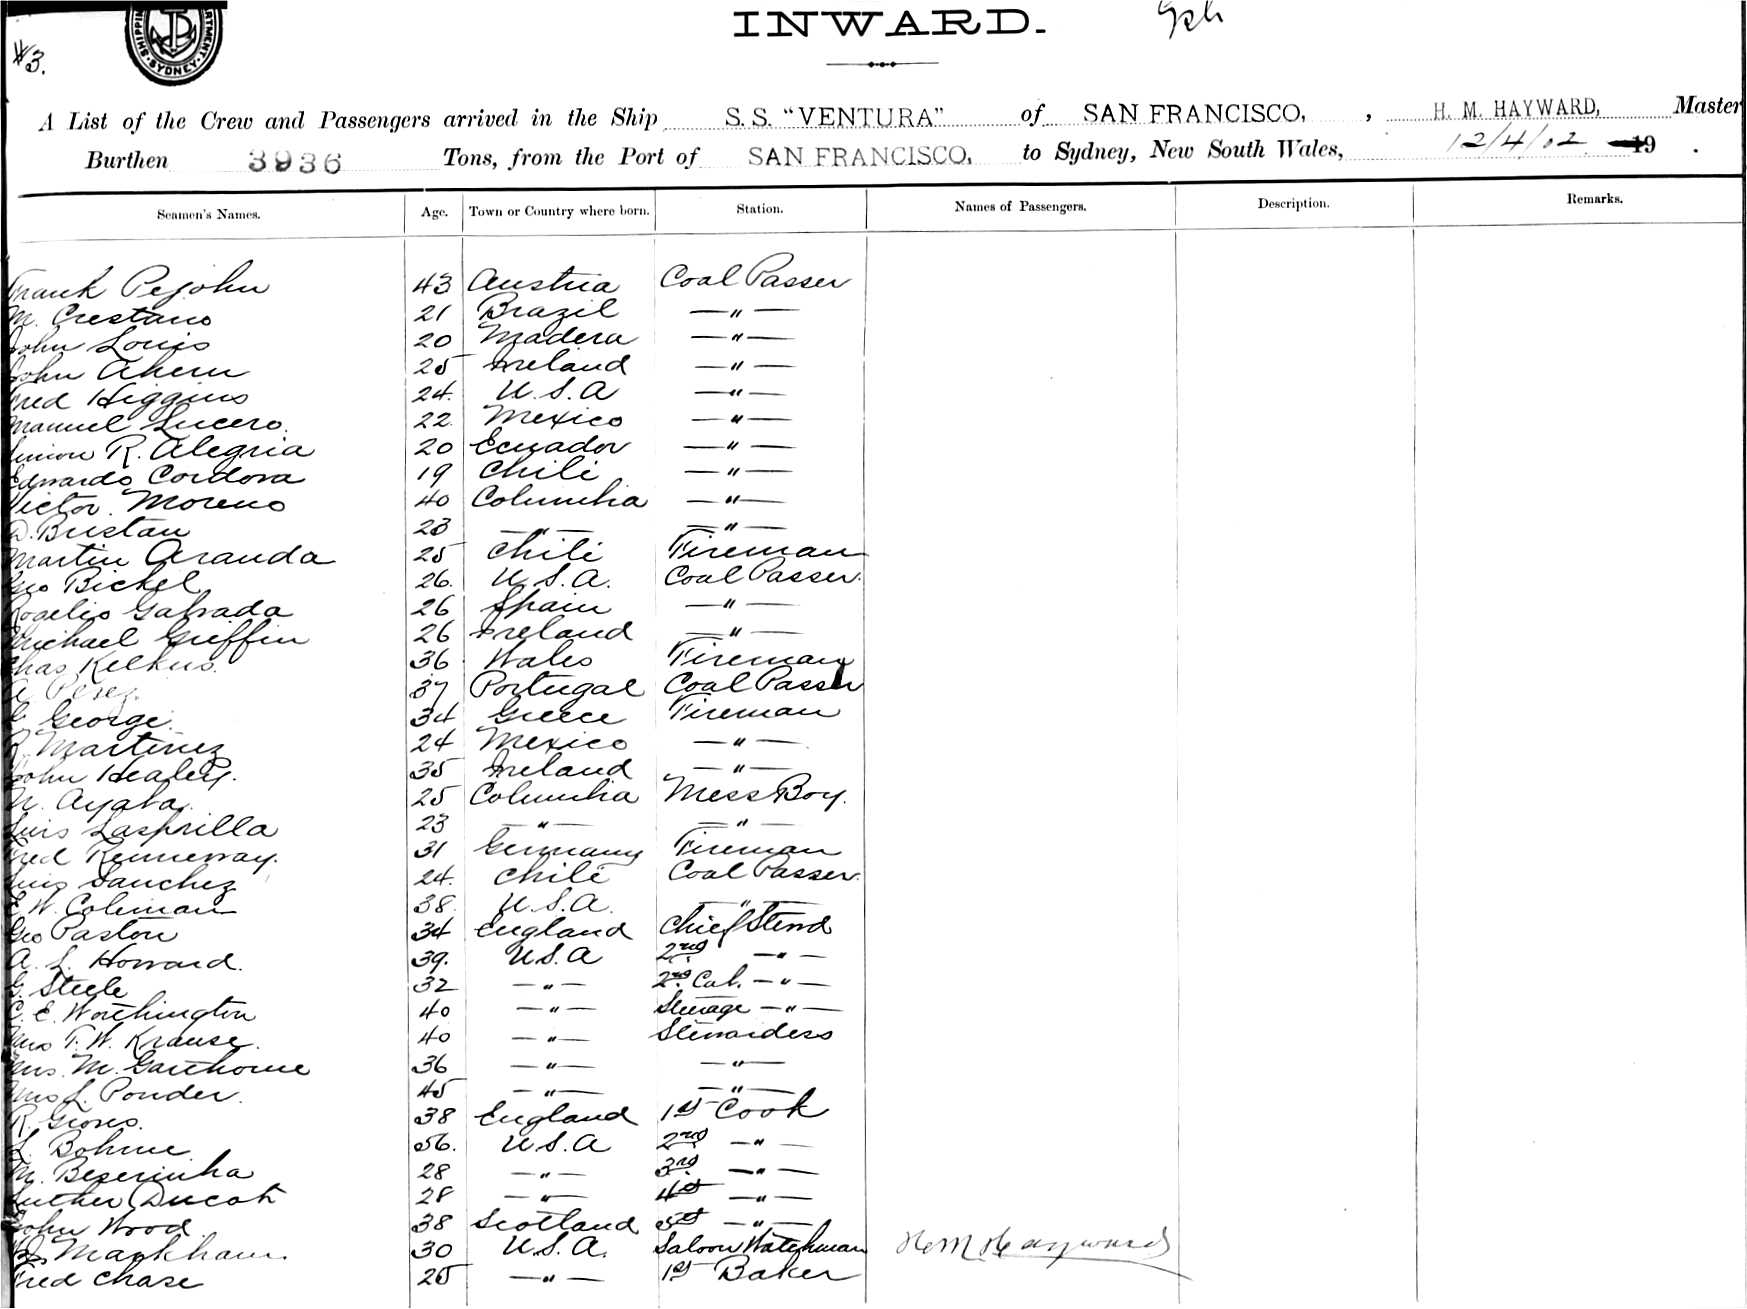 #3.
SHIPPING DEPARTMENT. SYDNEY.
INWARD.
A List of the Crew and Passengers arrived in the Ship S. S. "VENTURA" of SAN FRANCISCO, , H. M. HAYWARD, Master
Burthen 3936 Tons, from the Port of SAN FRANCISCO, to Sydney, New South Wales, 12/4/02 19 .
Seamen's Names. Age. Town or Country where born. Station. Names of Passengers. Description. Remarks.
Frank Pejohn 43 Austria Coal Passer
M. Crestano 21 Brazil —"—
John Louis 20 Madera —"—
John Ahern 25 Ireland —"—
Fred Higgins 24. U.S.A —"—
Manuel Lucero. 22. Mexico —"—
Simon R. Alegria 20 Ecuador —"—
Edwardo Cordova 19 Chili —"—
Victor Moreno 40 Columbia —"—
D. Bristan 23 —"— —"—
Martin Aranda 25 Chili Fireman
Geo Bickel 26. U.S.A. Coal Passer.
Rogelio Galvada 26 Spain —"—
Michael Griffin 26 Ireland —"—
Chas 36 Wales Fireman
A Perez. 37 Portugal Coal Passer
George. 34 Greece Fireman
R. Martinez 24 Mexico —"—
John Healey. 35 Ireland —"—
N. Ayala. 25 Columbia Mess Boy.
Luis Lasprilla 23 —"— —"—
Fred Kenneway. 31 Germany Fireman
Luis Sanchez 24. Chili Coal Passer.
E. W. Coleman 38. U.S.A. —"—
Geo Paston 34 England Chief Stewd
A. L. Howard. 39. U.S.A 2nd —"—
G. Steele 32 —"— 2nd Cab. —"—
C. E. Worthington 40 —"— Steerage —"—
Mrs T. W. Krause. 40 —"— Stewardess
Mrs. M. Garthorne 36 —"— —"—
Mrs L. Ponder. 45 —"— —"—
R. 38 England 1st Cook
L. Bohme 56. U.S.A 2nd —"—
M. Beserinha 28 —"— 3rd —"—
Luther Ducat 28 —"— 4th —"—
John Wood 38 Scotland 5th —"—
Markham. 30 U.S.A. Saloon Watchman H M Hayward
Fred Chase 25 —"— 1st Baker